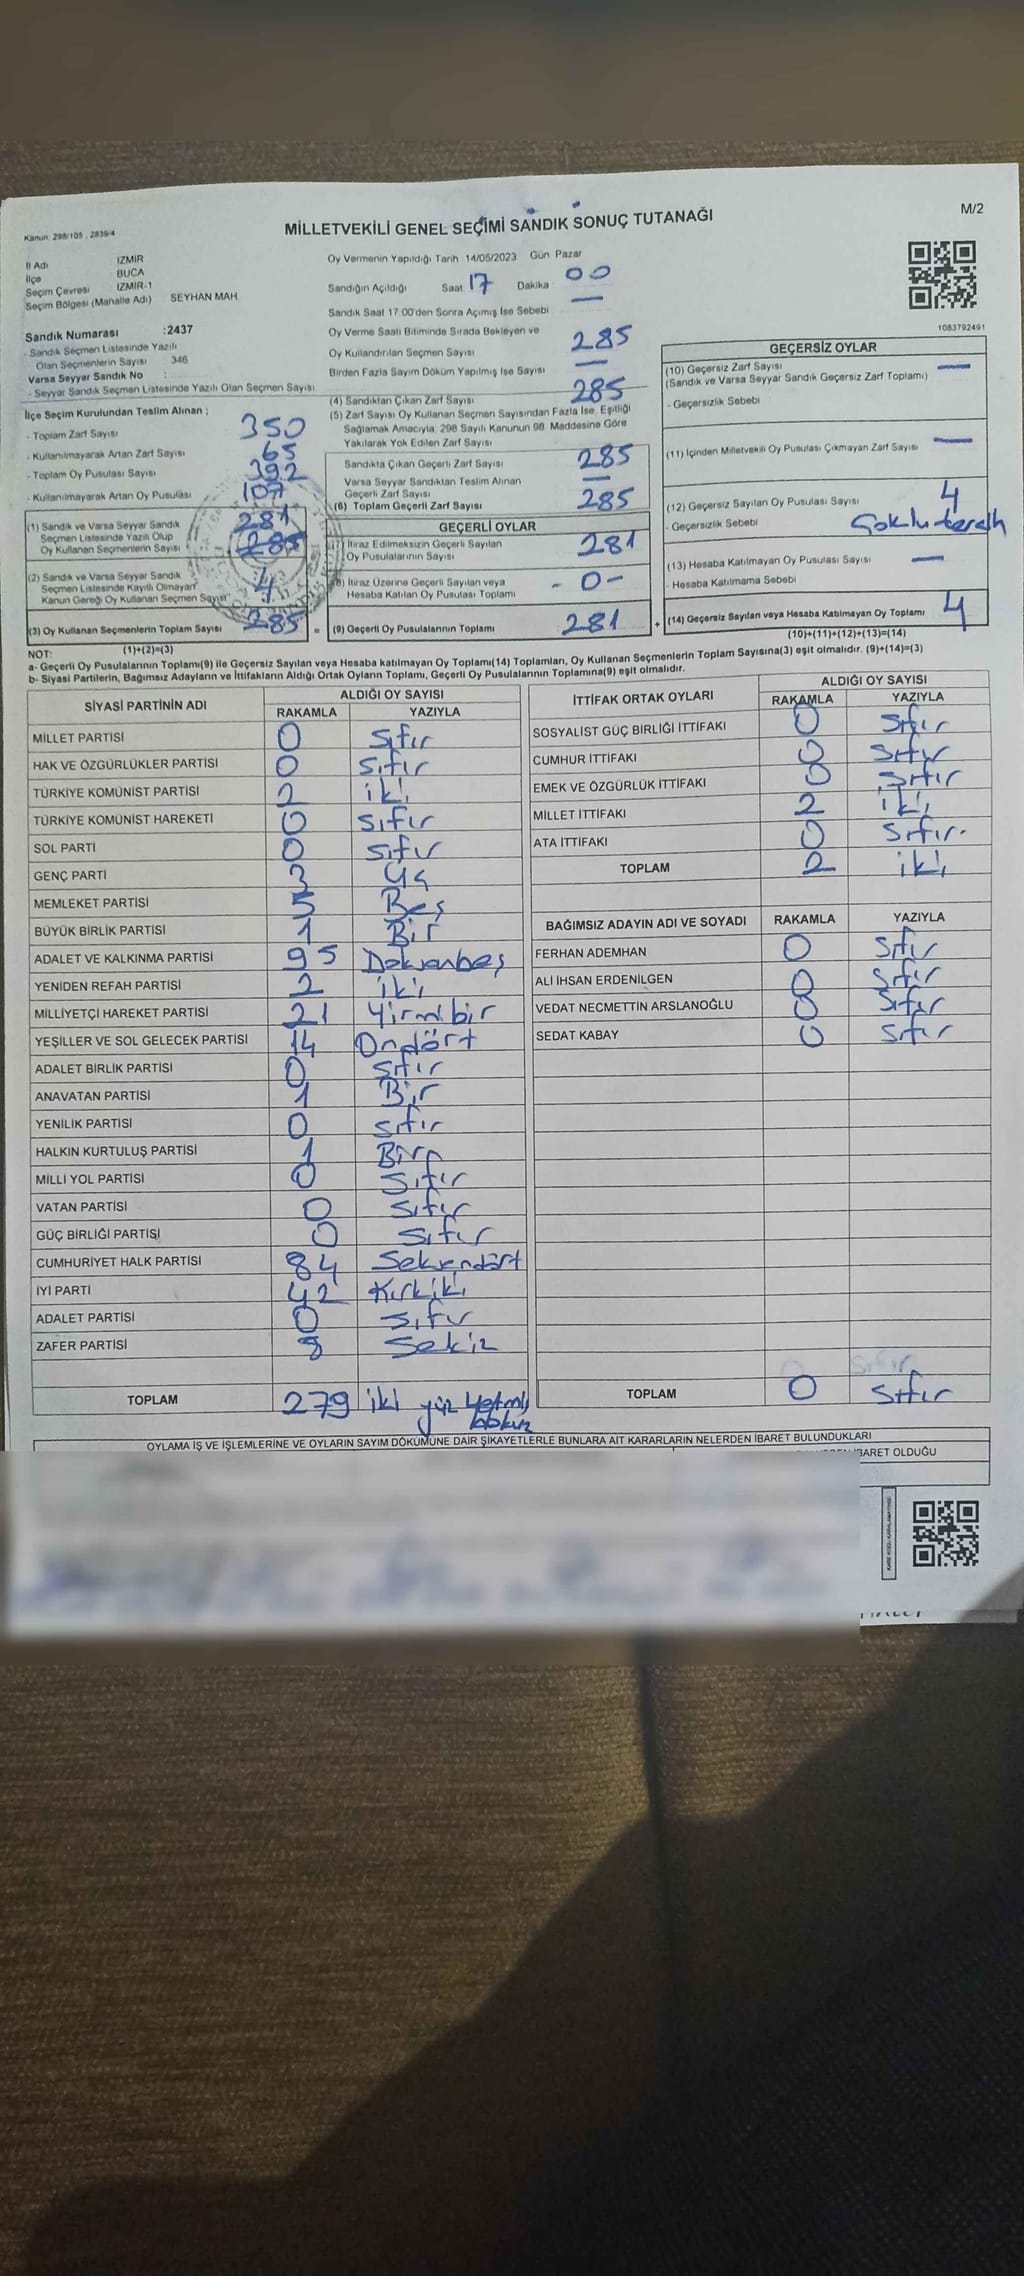 Kanun. 298/105 , 2839/4
MİLLETVEKİLİ GENEL SEÇİMİ SANDIK SONUÇ TUTANAĞI
M/2
İl Adı İZMİR
İlçe BUCA
Seçim Çevresi İZMİR-1
Seçim Bölgesi (Mahalle Adı) SEYHAN MAH.
Sandık Numarası :2437
- Sandık Seçmen Listesinde Yazılı
Olan Seçmenlerin Sayısı 346
Varsa Seyyar Sandık No :
- Seyyar Sandık Seçmen Listesinde Yazılı Olan Seçmen Sayısı:
İlçe Seçim Kurulundan Teslim Alınan ;
- Toplam Zarf Sayısı 350
- Kullanılmayarak Artan Zarf Sayısı 65
- Toplam Oy Pusulası Sayısı 392
- Kullanılmayarak Artan Oy Pusulası 107
(1) Sandık ve Varsa Seyyar Sandık 281
Seçmen Listesinde Yazılı Olup
Oy Kullanan Seçmenlerin Sayısı 285
(2) Sandık ve Varsa Seyyar Sandık
Seçmen Listesinde Kayıtlı Olmayan 4
Kanun Gereği Oy Kullanan Seçmen Sayısı
(3) Oy Kullanan Seçmenlerin Toplam Sayısı 285 =
(1)+(2)=(3)
Oy Vermenin Yapıldığı Tarih 14/05/2023 Gün Pazar
Sandığın Açıldığı Saat 17 Dakika 00
Sandık Saat 17.00'den Sonra Açımış İse Sebebi —
Oy Verme Saati Bitiminde Sırada Bekleyen ve
Oy Kullandırılan Seçmen Sayısı 285
Birden Fazla Sayım Döküm Yapılmış İse Sayısı —
(4) Sandıktan Çıkan Zarf Sayısı 285
(5) Zarf Sayısı Oy Kullanan Seçmen Sayısından Fazla İse, Eşitliği
Sağlamak Amacıyla, 298 Sayılı Kanunun 98. Maddesine Göre
Yakılarak Yok Edilen Zarf Sayısı
Sandıkta Çıkan Geçerli Zarf Sayısı 285
Varsa Seyyar Sandıktan Teslim Alınan
Geçerli Zarf Sayısı —
(6) Toplam Geçerli Zarf Sayısı 285
GEÇERLİ OYLAR
(7) İtiraz Edilmeksizin Geçerli Sayılan
Oy Pusulalarının Sayısı 281
(8) İtiraz Üzerine Geçerli Sayılan veya
Hesaba Katılan Oy Pusulası Toplamı -0-
(9) Geçerli Oy Pusulalarının Toplamı 281 +
1083792491
GEÇERSİZ OYLAR
(10) Geçersiz Zarf Sayısı —
(Sandık ve Varsa Seyyar Sandık Geçersiz Zarf Toplamı)
- Geçersizlik Sebebi
(11) İçinden Milletvekili Oy Pusulası Çıkmayan Zarf Sayısı —
(12) Geçersiz Sayılan Oy Pusulası Sayısı 4
- Geçersizlik Sebebi Çoklu tercih
(13) Hesaba Katılmayan Oy Pusulası Sayısı —
- Hesaba Katılmama Sebebi
(14) Geçersiz Sayılan veya Hesaba Katılmayan Oy Toplamı 4
(10)+(11)+(12)+(13)=(14)
NOT:
a- Geçerli Oy Pusulalarının Toplamı(9) ile Geçersiz Sayılan veya Hesaba katılmayan Oy Toplamı(14) Toplamları, Oy Kullanan Seçmenlerin Toplam Sayısına(3) eşit olmalıdır. (9)+(14)=(3)
b- Siyasi Partilerin, Bağımsız Adayların ve İttifakların Aldığı Ortak Oyların Toplamı, Geçerli Oy Pusulalarının Toplamına(9) eşit olmalıdır.
SİYASİ PARTİNİN ADI ALDIĞI OY SAYISI
RAKAMLA YAZIYLA
MİLLET PARTİSİ 0 Sıfır
HAK VE ÖZGÜRLÜKLER PARTİSİ 0 Sıfır
TÜRKİYE KOMÜNİST PARTİSİ 2 iki
TÜRKİYE KOMÜNİST HAREKETİ 0 Sıfır
SOL PARTİ 0 Sıfır
GENÇ PARTİ 3 Üç
MEMLEKET PARTİSİ 5 Beş
BÜYÜK BİRLİK PARTİSİ 1 Bir
ADALET VE KALKINMA PARTİSİ 95 Doksanbeş
YENİDEN REFAH PARTİSİ 2 iki
MİLLİYETÇİ HAREKET PARTİSİ 21 Yirmibir
YEŞİLLER VE SOL GELECEK PARTİSİ 14 Ondört
ADALET BİRLİK PARTİSİ 0 Sıfır
ANAVATAN PARTİSİ 1 Bir
YENİLİK PARTİSİ 0 Sıfır
HALKIN KURTULUŞ PARTİSİ 1 Bir
MİLLİ YOL PARTİSİ 0 Sıfır
VATAN PARTİSİ 0 Sıfır
GÜÇ BİRLİĞİ PARTİSİ 0 Sıfır
CUMHURİYET HALK PARTİSİ 84 Seksendört
İYİ PARTİ 42 Kırkiki
ADALET PARTİSİ 0 Sıfır
ZAFER PARTİSİ 8 Sekiz
TOPLAM 279 iki yüz yetmiş
dokuz
İTTİFAK ORTAK OYLARI ALDIĞI OY SAYISI
RAKAMLA YAZIYLA
SOSYALİST GÜÇ BİRLİĞİ İTTİFAKI 0 Sıfır
CUMHUR İTTİFAKI 0 Sıfır
EMEK VE ÖZGÜRLÜK İTTİFAKI 0 Sıfır
MİLLET İTTİFAKI 2 iki
ATA İTTİFAKI 0 Sıfır.
TOPLAM 2 iki
BAĞIMSIZ ADAYIN ADI VE SOYADI RAKAMLA YAZIYLA
FERHAN ADEMHAN 0 Sıfır
ALİ İHSAN ERDENİLGEN 0 Sıfır
VEDAT NECMETTİN ARSLANOĞLU 0 Sıfır
SEDAT KABAY 0 Sıfır
0 Sıfır
TOPLAM 0 Sıfır
OYLAMA İŞ VE İŞLEMLERİNE VE OYLARIN SAYIM DÖKÜMÜNE DAİR ŞİKAYETLERLE BUNLARA AİT KARARLARIN NELERDEN İBARET BULUNDUKLARI
İBARET OLDUĞU